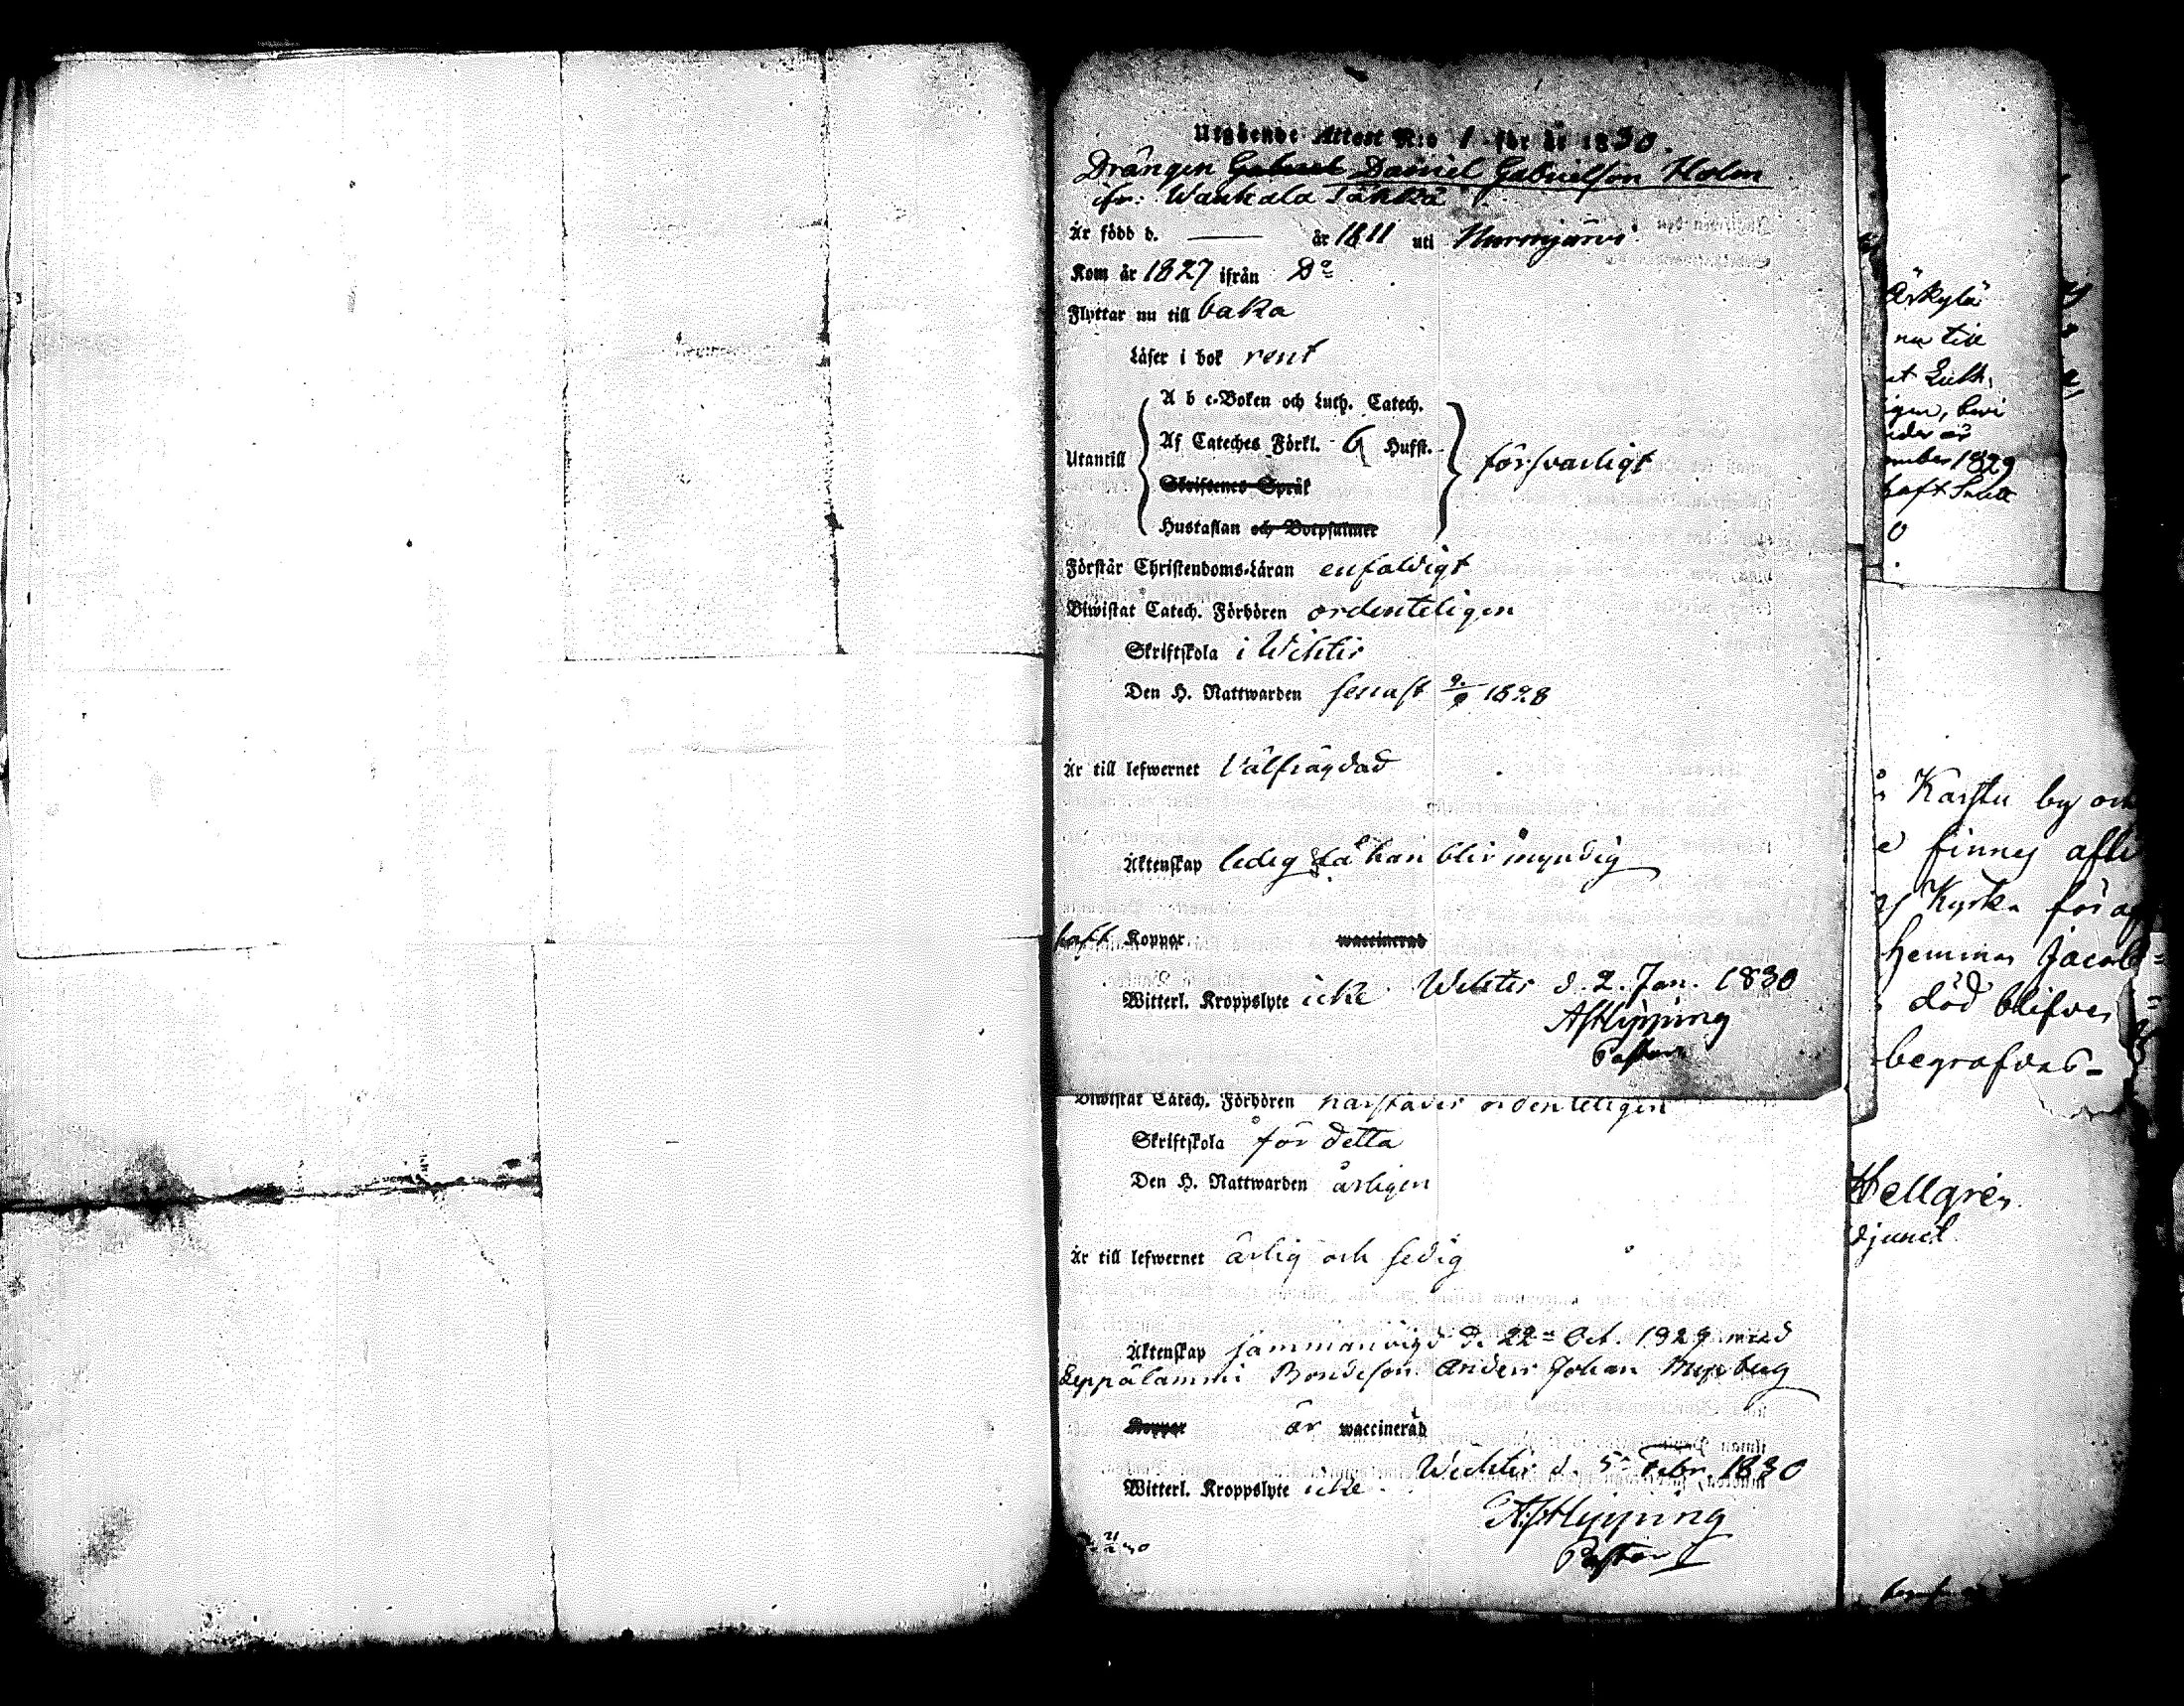 Utgående Attest N:o 1 för år 1830.
Drängen Gabriel Daniel Gabrielsson Holm
ifr. Wanhala Takka
Är född d. —— år 1811 uti Nurmijärvi
Kom år 1827 ifrån Do
Flyttar nu till baka
Läser i bok rent
A b c-Boken och Luth. Catech.
Af Cateches Förkl. 6 Hufst.
Utantill försvarligt
Skriftenes Språk
Hustaflan och Botpsalmer
Förstår Christendoms-Läran enfaldigt
Biwistat Catech. Förhören ordenteligen
Skriftskola i Wichtis
Den H. Nattwarden senast 1828
Är till lefwernet Välfrägdad
Äktenskap ledig då han blir myndig
haft Koppor waccinerad
Witterl. Kroppslyte icke Wichtis d. 2. Jan. 1830
AJHipping
Pastor
Biwistat Catech. Förhören härstädes ordenteligen
Skriftskola för detta
Den H. Nattwarden årligen
Är till lefwernet ärlig och sedig
Äktenskap sammanvigd d. 22 Oct. 1829 med
Seppälammi Bondeson Anders Johan
Koppor är waccinerad
Wichtis d. 5 Febr. 1830
Witterl. Kroppslyte icke
AJHipping
Pastor
nu till
1829
Karstu by och
finnes
Kyrka för
hemman Jacob
död blifven
begrafvas
Hellgren
djunct